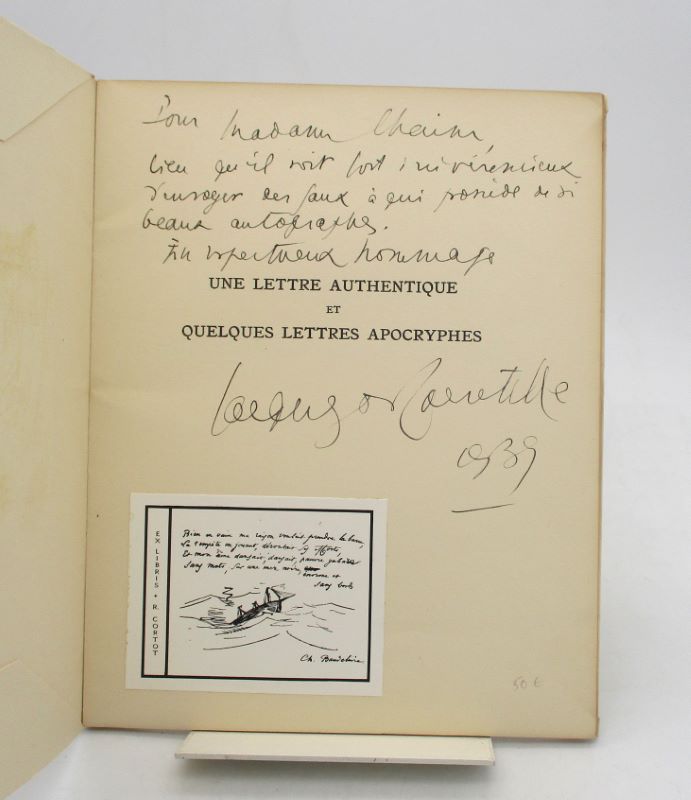 Pour Madame
bien qu'il soit fort irrévérencieux
d'envoyer des faux à qui possède de si
beaux autographes.
En respectueux hommage
UNE LETTRE AUTHENTIQUE
ET
QUELQUES LETTRES APOCRYPHES
Jacques de Lacretelle
1939
EX LIBRIS • R. CORTOT
Bien en vain ma raison voulait prendre la barre,
La tempête en jouant, déroutait ses efforts,
Et mon âme dansait, dansait, pauvre gabarre
Sans mats, sur une mer noire, énorme et
sans bords
Ch. Baudelaire
50 €